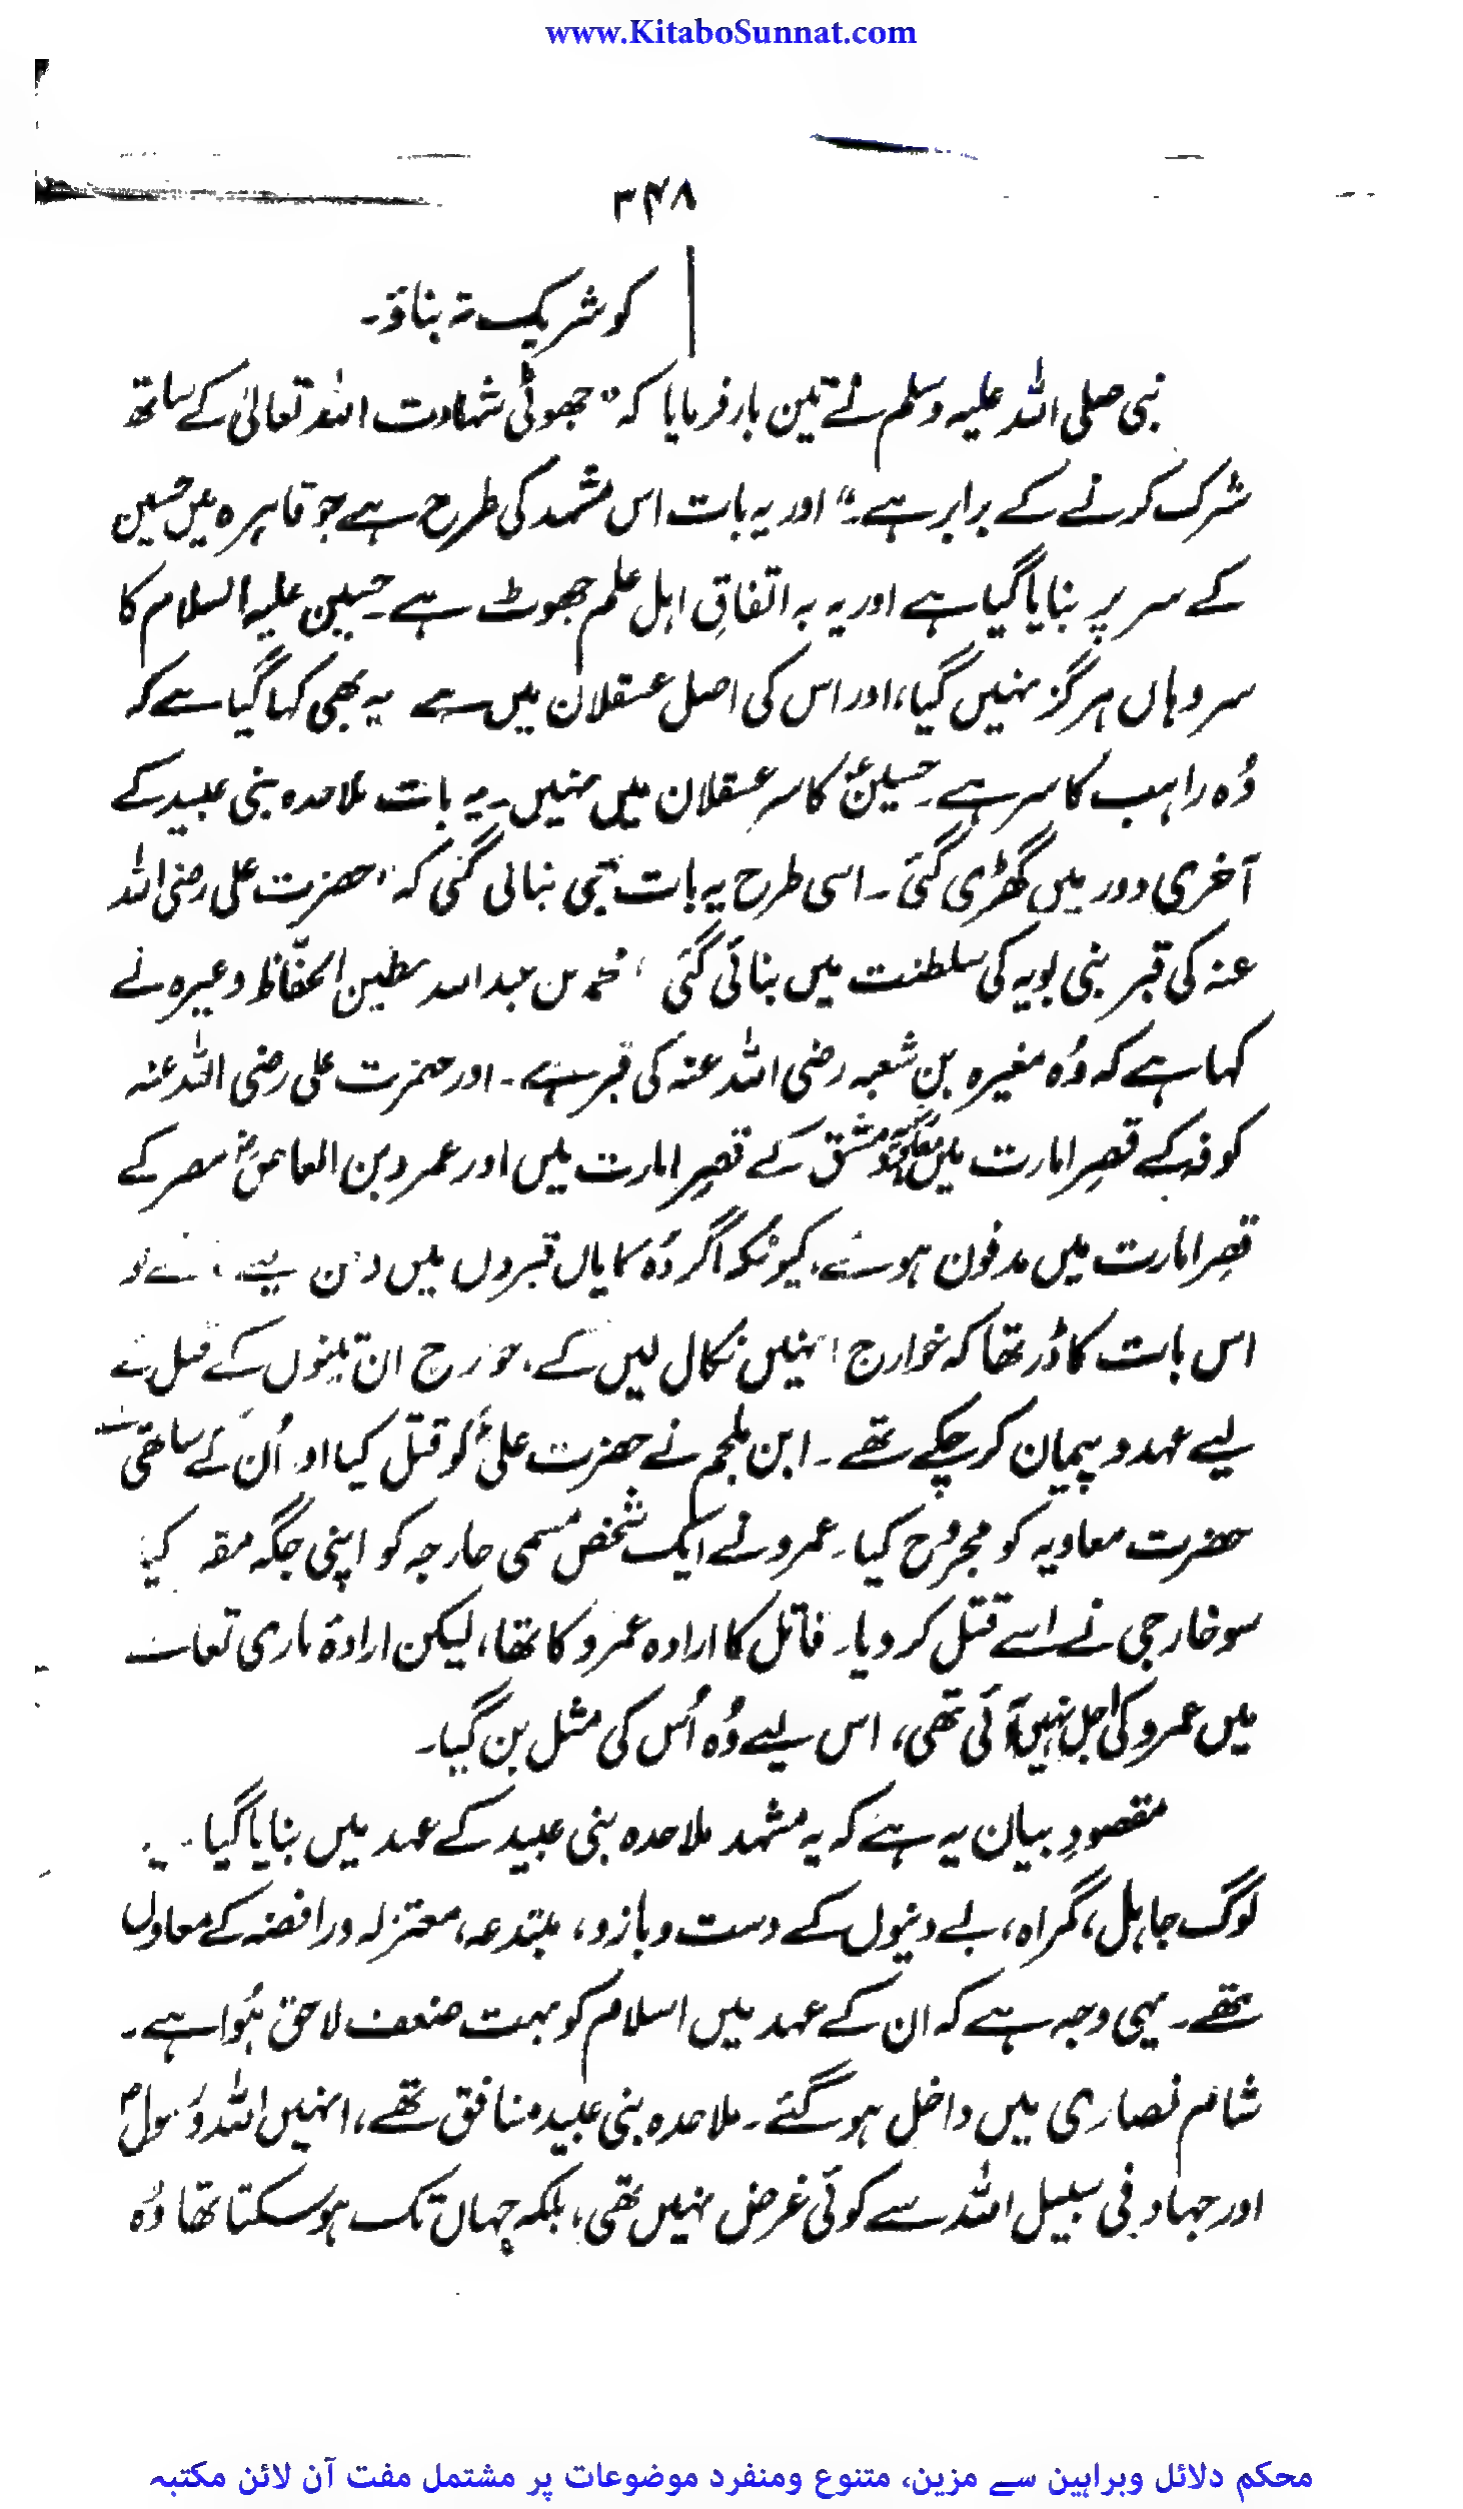 www.KitaboSunnat.com
۳۴۸
کو شریک نہ بناؤ۔
نبی صلی اللہ علیہ وسلم نے تین بار فرمایا کہ "جھوٹی شہادت اللہ تعالیٰ کے ساتھ
شرک کرنے کے برابر ہے۔" اور یہ بات اس مشہد کی طرح ہے جو قاہرہ میں حسین
کے سر پر بنایا گیا ہے اور یہ بہ اتفاقِ اہل علم جھوٹ ہے۔ حسین علیہ السلام کا
سر وہاں ہرگز نہیں گیا، اور اس کی اصل عسقلان میں ہے یہ بھی کہا گیا ہے کہ
وُہ راہب کا سر ہے۔ حسینؓ کا سر عسقلان میں نہیں۔ یہ بات ملاحدہ بنی عبید کے
آخری دور میں گھڑی گئی۔ اسی طرح یہ بات بھی بنالی گئی کہ "حضرت علی رضی اللہ
عنہ کی قبر بنی بویہ کی سلطنت میں بنائی گئی، محمد بن عبد اللہ مطین الحفّاظ وغیرہ نے
کہا ہے کہ وُہ مغیرہ بنِ شعبہ رضی اللہ عنہ کی قبر ہے۔ اور حضرت علی رضی اللہ عنہ
کوفہ کے قصرِ امارت میں معاویہؓ دمشق کے قصرِ امارت میں اور عمرو بن العاصؓ مصر کے
قصرِ امارت میں مدفون ہوئے، کیونکہ اگر وُہ نمایاں قبروں میں دفن
اس بات کا ڈر تھا کہ خوارج انہیں نکال لیں گے، خوارج ان تینوں کے قتل کے
لیے عہد و پیمان کر چکے تھے۔ ابن ملجم نے حضرت علیؓ کو قتل کیا اور اُن کے ساتھی نے
حضرت معاویہ کو مجروح کیا۔ عمرو نے ایک شخص مسمی خارجہ کو اپنی جگہ مقرر کیا
سو خارجی نے اسے قتل کر دیا۔ قاتل کا ارادہ عمرو کا تھا، لیکن ارادۂ باری تعالیٰ
میں عمرو کی اجل نہیں آئی تھی، اس لیے وُہ اُس کی مثل بن گیا۔
مقصودِ بیان یہ ہے کہ یہ مشہد ملاحدہ بنی عبید کے عہد میں بنایا گیا
لوگ جاہل، گمراہ، بے دینوں کے دست و بازو، مبتدعہ، معتزلہ و رافضہ کے معاون
تھے۔ یہی وجہ ہے کہ ان کے عہد میں اسلام کو بہت ضعف لاحق ہُوا ہے۔
شام نصاریٰ میں داخل ہو گئے۔ ملاحدہ بنی عبید منافق تھے، انہیں اللہ و رسولؐ
اور جہاد فی سبیل اللہ سے کوئی غرض نہیں تھی، بلکہ جہاں تک ہو سکتا تھا وُہ
محکم دلائل وبراہین سے مزین، متنوع ومنفرد موضوعات پر مشتمل مفت آن لائن مکتبہ